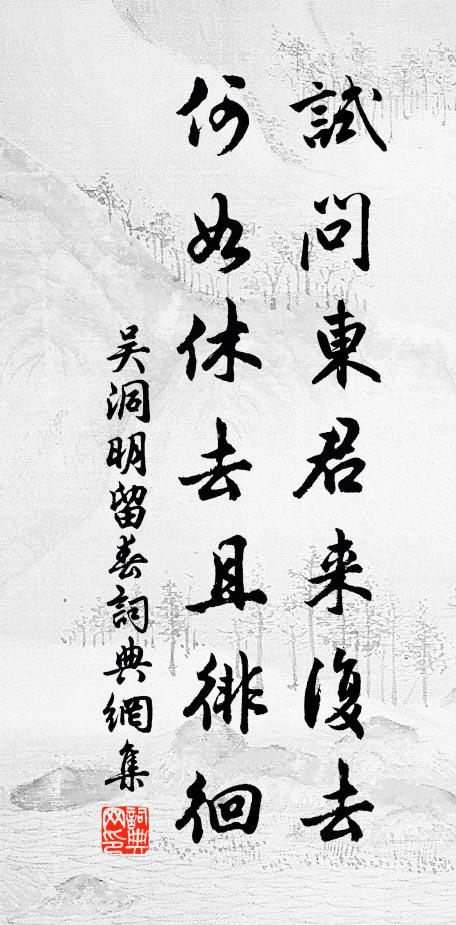 試問東君来復去
何如休去且徘徊
吴洞明留春詞典網集
詞典
网印